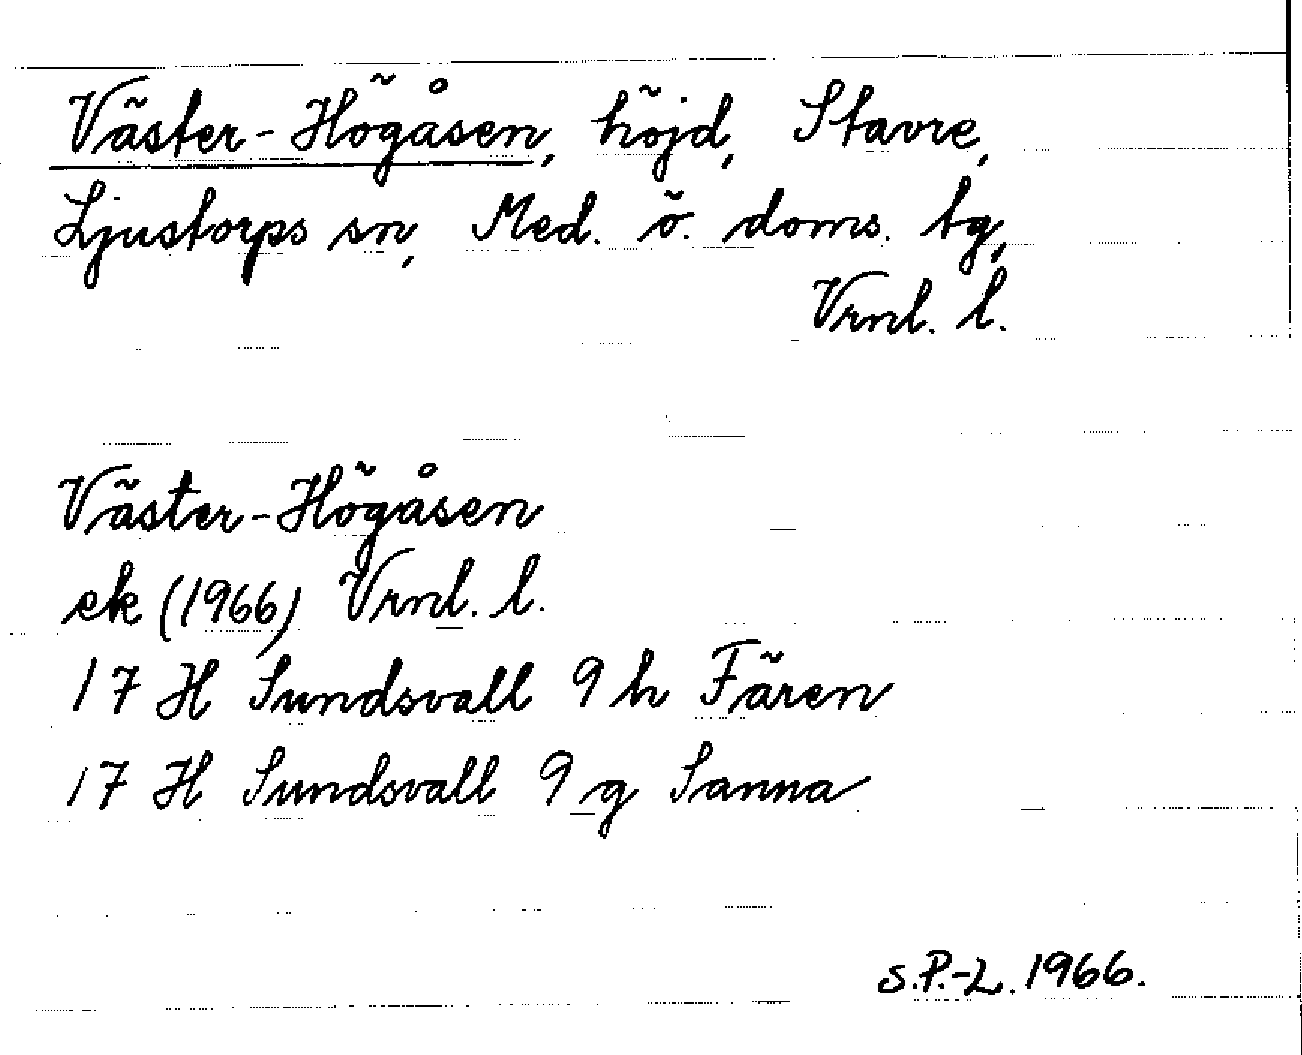 Väster-Högåsen, höjd, Stavre,
Ljustorps sn, Med. ö. doms. tg,
Vrnl. l.
Väster-Högåsen
ek (1966) Vrnl. l.
17 H Sundsvall 9 h Fären
17 H Sundsvall 9 g Sanna
S.P.-L. 1966.